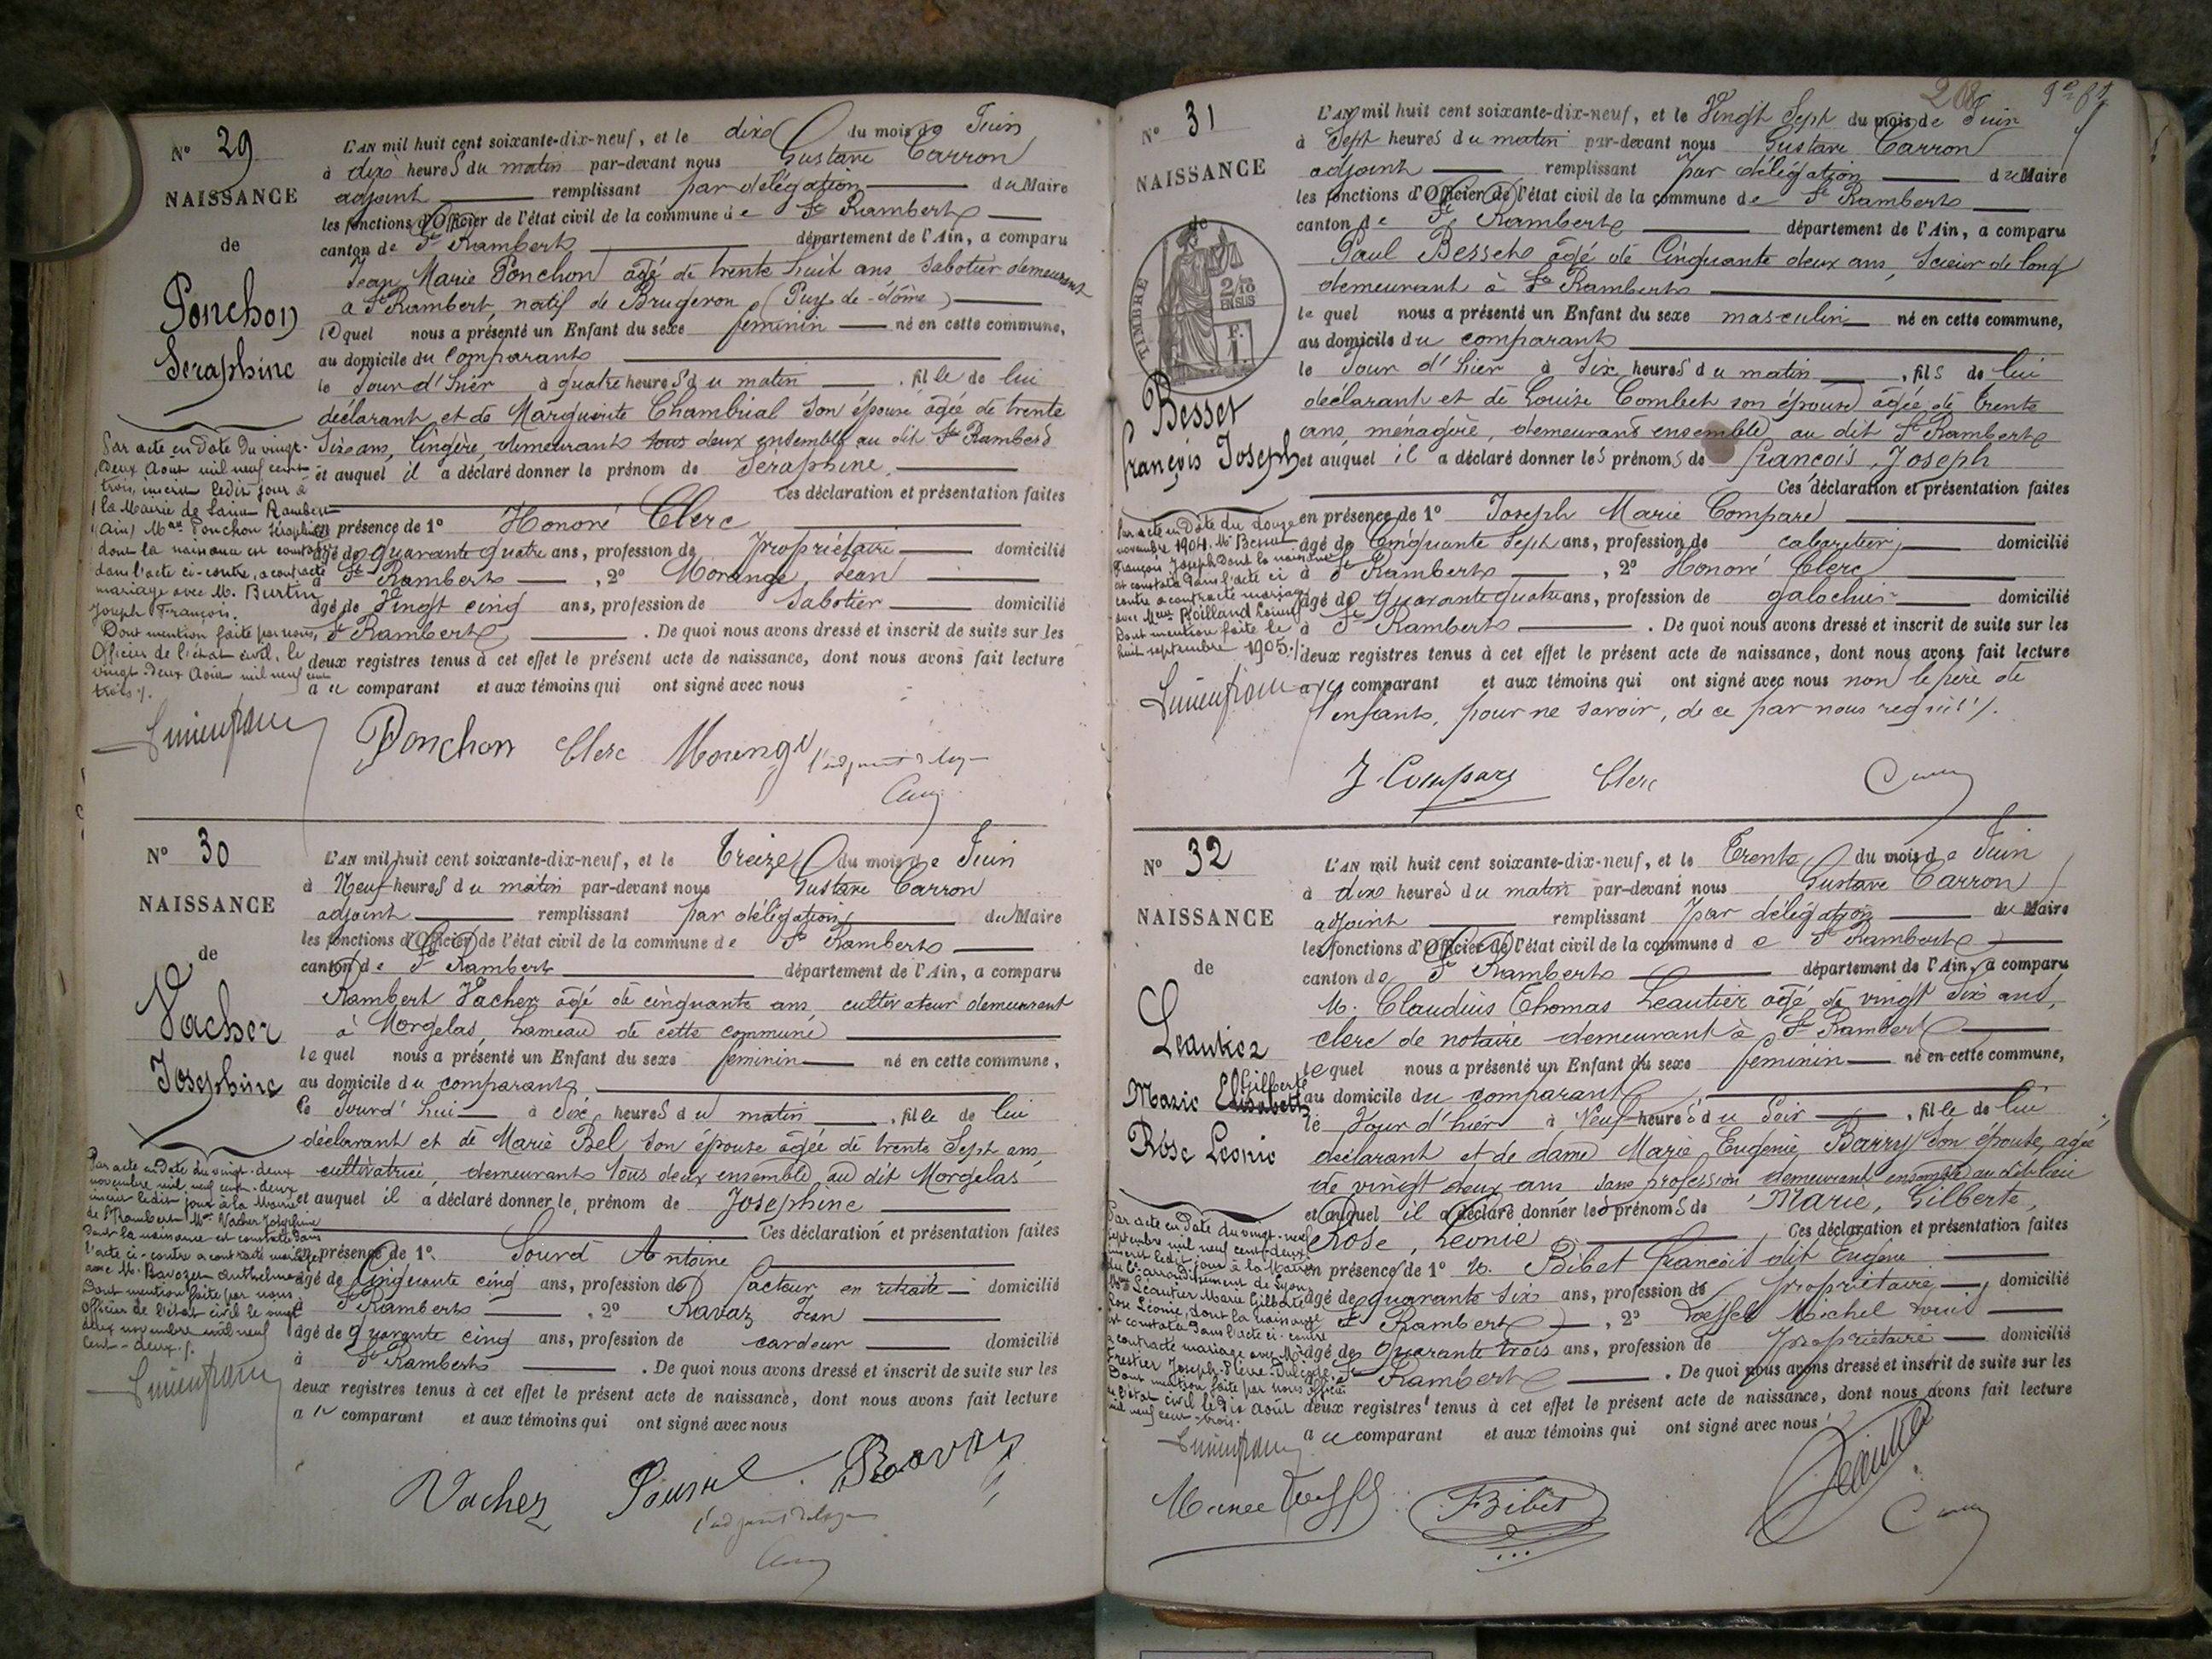 N° 29
NAISSANCE
de
Ponchon
Seraphine
L'AN mil huit cent soixante-dix-neuf, et le dix du mois de Juin
à dix heures du matin par-devant nous Gustave Carron
adjoint remplissant par délégation du Maire
les fonctions d'Officier de l'état civil de la commune de St Rambert
canton de St Rambert département de l'Ain, a comparu
Jean Marie Ponchon âgé de trente huit ans sabotier demeurant
à St Rambert, natif de Brugeron (Puy-de-dôme)
lequel nous a présenté un Enfant du sexe feminin né en cette commune,
au domicile du comparant
le Jour d'hier à quatre heures du matin , fille de lui
déclarant et de Marguerite Chambrial son épouse âgée de trente
six ans, lingère, demeurant tous deux ensemble au dit St Rambert
et auquel il a déclaré donner le prénom de Séraphine,
Ces déclaration et présentation faites
en présence de 1° Honoré Clerc
âgé de quarante quatre ans, profession de propriétaire domicilié
à St Rambert , 2° Morange, Jean
âgé de Vingt cinq ans, profession de Sabotier domicilié
St Rambert . De quoi nous avons dressé et inscrit de suite sur les
deux registres tenus à cet effet le présent acte de naissance, dont nous avons fait lecture
au comparant et aux témoins qui ont signé avec nous
Par acte en date du vingt-
deux Aout mil neuf cent
trois, inscrit ledit jour à
la Mairie de Saint Rambert
(Ain) Melle Ponchon Séraphine
dont la naissance est constatée
dans l'acte ci-contre, a contracté
mariage avec M. Burtin
Joseph François.
Dont mention faite par nous,
Officier de l'état civil, le
vingt-deux Août mil neuf cent
trois %.
Ponchon Clerc Morange l'adjoint délég
N° 30
NAISSANCE
de
Vacher
Josephine
L'AN mil huit cent soixante-dix-neuf, et le Treize du mois de Juin
à Neuf heures du matin par-devant nous Gustave Carron
adjoint remplissant par délégation du Maire
les fonctions d'Officier de l'état civil de la commune de St Rambert
canton de St Rambert département de l'Ain, a comparu
Rambert Vacher âgé de cinquante ans, cultivateur demeurant
à Morgelas, hameau de cette commune
lequel nous a présenté un Enfant du sexe feminin né en cette commune,
au domicile du comparant
le Jourd'hui à Six heures du matin , fille de lui
déclarant et de Marie Bel son épouse âgée de trente Sept ans,
cultivatrice, demeurant tous deux ensemble au dit Morgelas
et auquel il a déclaré donner le prénom de Josephine
Ces déclaration et présentation faites
en présence de 1° Sourd Antoine
âgé de Cinquante cinq ans, profession de facteur en retraite domicilié
à St Rambert , 2° Ravaz Jean
âgé de quarante cinq ans, profession de cardeur domicilié
à St Rambert . De quoi nous avons dressé et inscrit de suite sur les
deux registres tenus à cet effet le présent acte de naissance, dont nous avons fait lecture
au comparant et aux témoins qui ont signé avec nous
Par acte en date du vingt-deux
novembre mil neuf cent-deux
inscrit ledit jour à la Mairie
de St Rambert Melle Vacher Joséphine
dont la naissance est constatée dans
l'acte ci-contre a contracté mariage
avec M. Bavozen Anthelme
Dont mention faite par nous
Officier de l'état civil le vingt
deux novembre mil neuf
cent-deux %.
Vacher Sourd Ravaz
l'adjoint délégué
208
N° 31
NAISSANCE
de
TIMBRE
2/10 EN SUS
F. 1.
Besset
François Joseph
L'AN mil huit cent soixante-dix-neuf, et le Vingt Sept du mois de Juin
à Sept heures du matin par-devant nous Gustave Carron
adjoint remplissant par délégation du Maire
les fonctions d'Officier de l'état civil de la commune de St Rambert
canton de St Rambert département de l'Ain, a comparu
Paul Besset âgé de Cinquante deux ans, Scieur de long
demeurant à St Rambert
lequel nous a présenté un Enfant du sexe masculin né en cette commune,
au domicile du comparant
le Jour d'hier à Six heures du matin , fils de lui
déclarant et de Louise Combet son épouse âgée de trente
ans, ménagère, demeurant ensemble au dit St Rambert
et auquel il a déclaré donner les prénoms de François, Joseph
Ces déclaration et présentation faites
en présence de 1° Joseph Marie Compare
âgé de Cinquante Sept ans, profession de cabaretier, domicilié
à St Rambert , 2° Honoré Clerc
âgé de quarante quatre ans, profession de galochier domicilié
à St Rambert . De quoi nous avons dressé et inscrit de suite sur les
deux registres tenus à cet effet le présent acte de naissance, dont nous avons fait lecture
au comparant et aux témoins qui ont signé avec nous non le père de
l'enfant, pour ne savoir, de ce par nous requis %.
Par acte en date du douze
novembre 1904. Mr Besset
François Joseph dont la naissance
est constatée dans l'acte ci
contre a contracté mariage
avec Melle Roilland Louise
Dont mention faite le
huit septembre 1905.
J. Compare Clerc
N° 32
NAISSANCE
de
Leautier
Marie Gilberte Elisabeth
Rose Leonie
L'AN mil huit cent soixante-dix-neuf, et le Trente du mois de Juin
à dix heures du matin par-devant nous Gustave Carron
adjoint remplissant par délégation du Maire
les fonctions d'Officier de l'état civil de la commune de St Rambert
canton de St Rambert département de l'Ain, a comparu
M. Claudius Thomas Leautier âgé de vingt six ans,
clerc de notaire demeurant à St Rambert
lequel nous a présenté un Enfant du sexe feminin né en cette commune,
au domicile du comparant
le Jour d'hier à Neuf heures du Soir , fille de lui
déclarant et de dame Marie Eugénie Barry son épouse, agée
de vingt deux ans sans profession demeurant ensemble au dit lieu
et auquel il a déclaré donner les prénoms de Marie, Gilberte,
Rose, Leonie Ces déclaration et présentation faites
en présence de 1° M. Bibet François dit Eugene
âgé de quarante six ans, profession de propriétaire, domicilié
St Rambert , 2° Michel Louis
âgé de Quarante trois ans, profession de propriétaire domicilié
St Rambert . De quoi nous avons dressé et inscrit de suite sur les
deux registres tenus à cet effet le présent acte de naissance, dont nous avons fait lecture
au comparant et aux témoins qui ont signé avec nous
Par acte en date du vingt-neuf
septembre mil neuf cent-deux
inscrit ledit jour à la Mairie
du arrondissement de Lyon
Melle Léautier Marie Gilberte
Rose Léonie, dont la naissance
est constatée dans l'acte ci-contre
a contracté mariage avec Mr
Frestier Joseph-Pierre
Dont mention faite par nous officier
de l'état civil le dix Août
mil neuf cent-trois.
Bibet Leautier